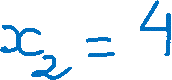 x₂ = 4